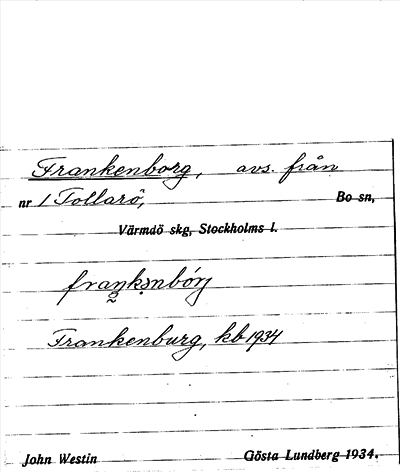 Frankenborg, avs. från
nr 1 Tollarö, Bo sn,
Värmdö skg, Stockholms l.
Frankenburg, kb 1934
John Westin Gösta Lundberg 1934.